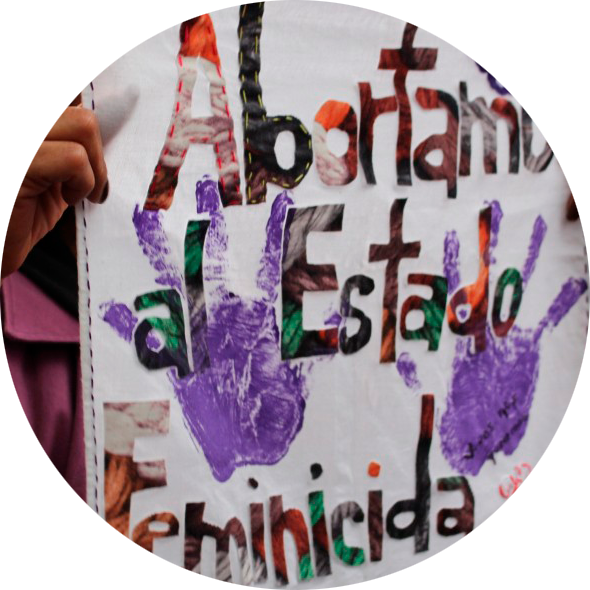 Abortamo
al Estado
Feminicida